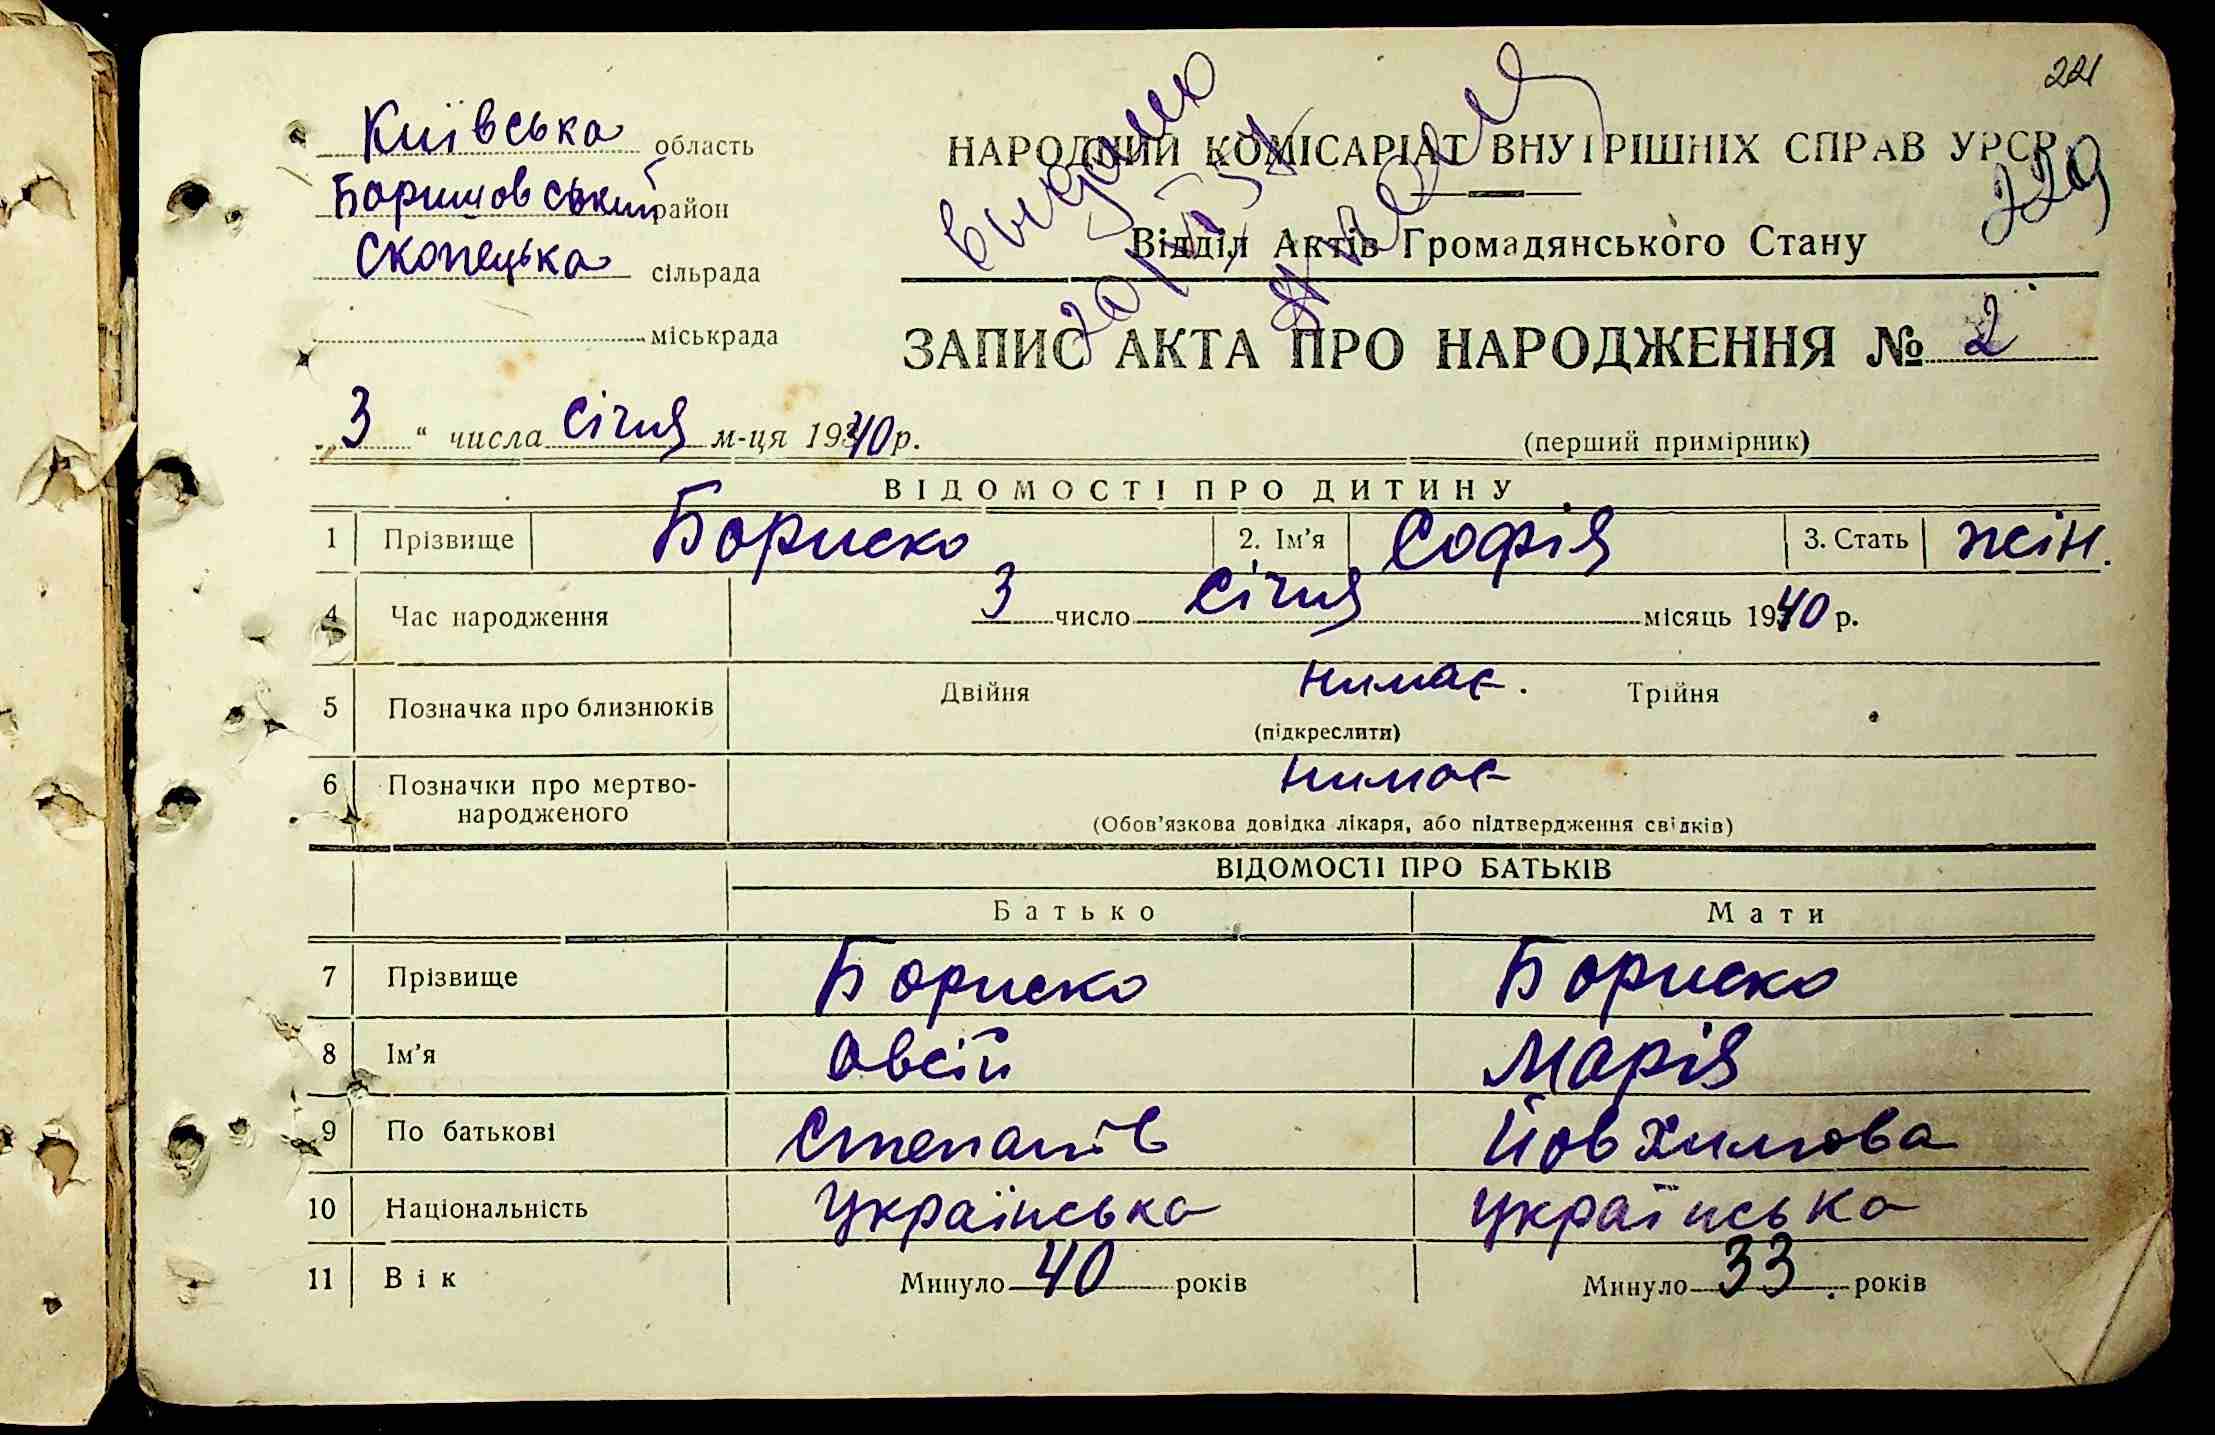 221
229
Київська область
Баришовський район
Скопецька сільрада
міськрада
НАРОДНИЙ КОМІСАРІАТ ВНУТРІШНІХ СПРАВ УРСР
Відділ Актів Громадянського Стану
ЗАПИС АКТА ПРО НАРОДЖЕННЯ № 2
„ 3 “ числа січня м-ця 1940 р.
(перший примірник)
ВІДОМОСТІ ПРО ДИТИНУ
1 Прізвище Бориско 2. Ім'я Софія 3. Стать жін.
4 Час народження 3 число січня місяць 1940 р.
5 Позначка про близнюків Двійня нимає. Трійня
(підкреслити)
6 Позначки про мертво-
народженого
нимає
(Обов'язкова довідка лікаря, або підтвердження свідків)
ВІДОМОСТІ ПРО БАТЬКІВ
Батько Мати
7 Прізвище Бориско Бориско
8 Ім'я Овсій Марія
9 По батькові Степанів Йовхимова
10 Національність українська українська
11 Вік Минуло 40 років Минуло 33 років